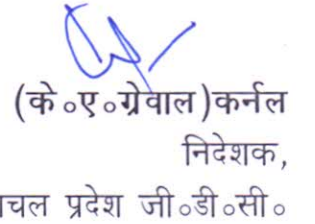 (के०ए०ग्रेवाल)कर्नल
निदेशक,
प्रदेश जी०डी०सी०